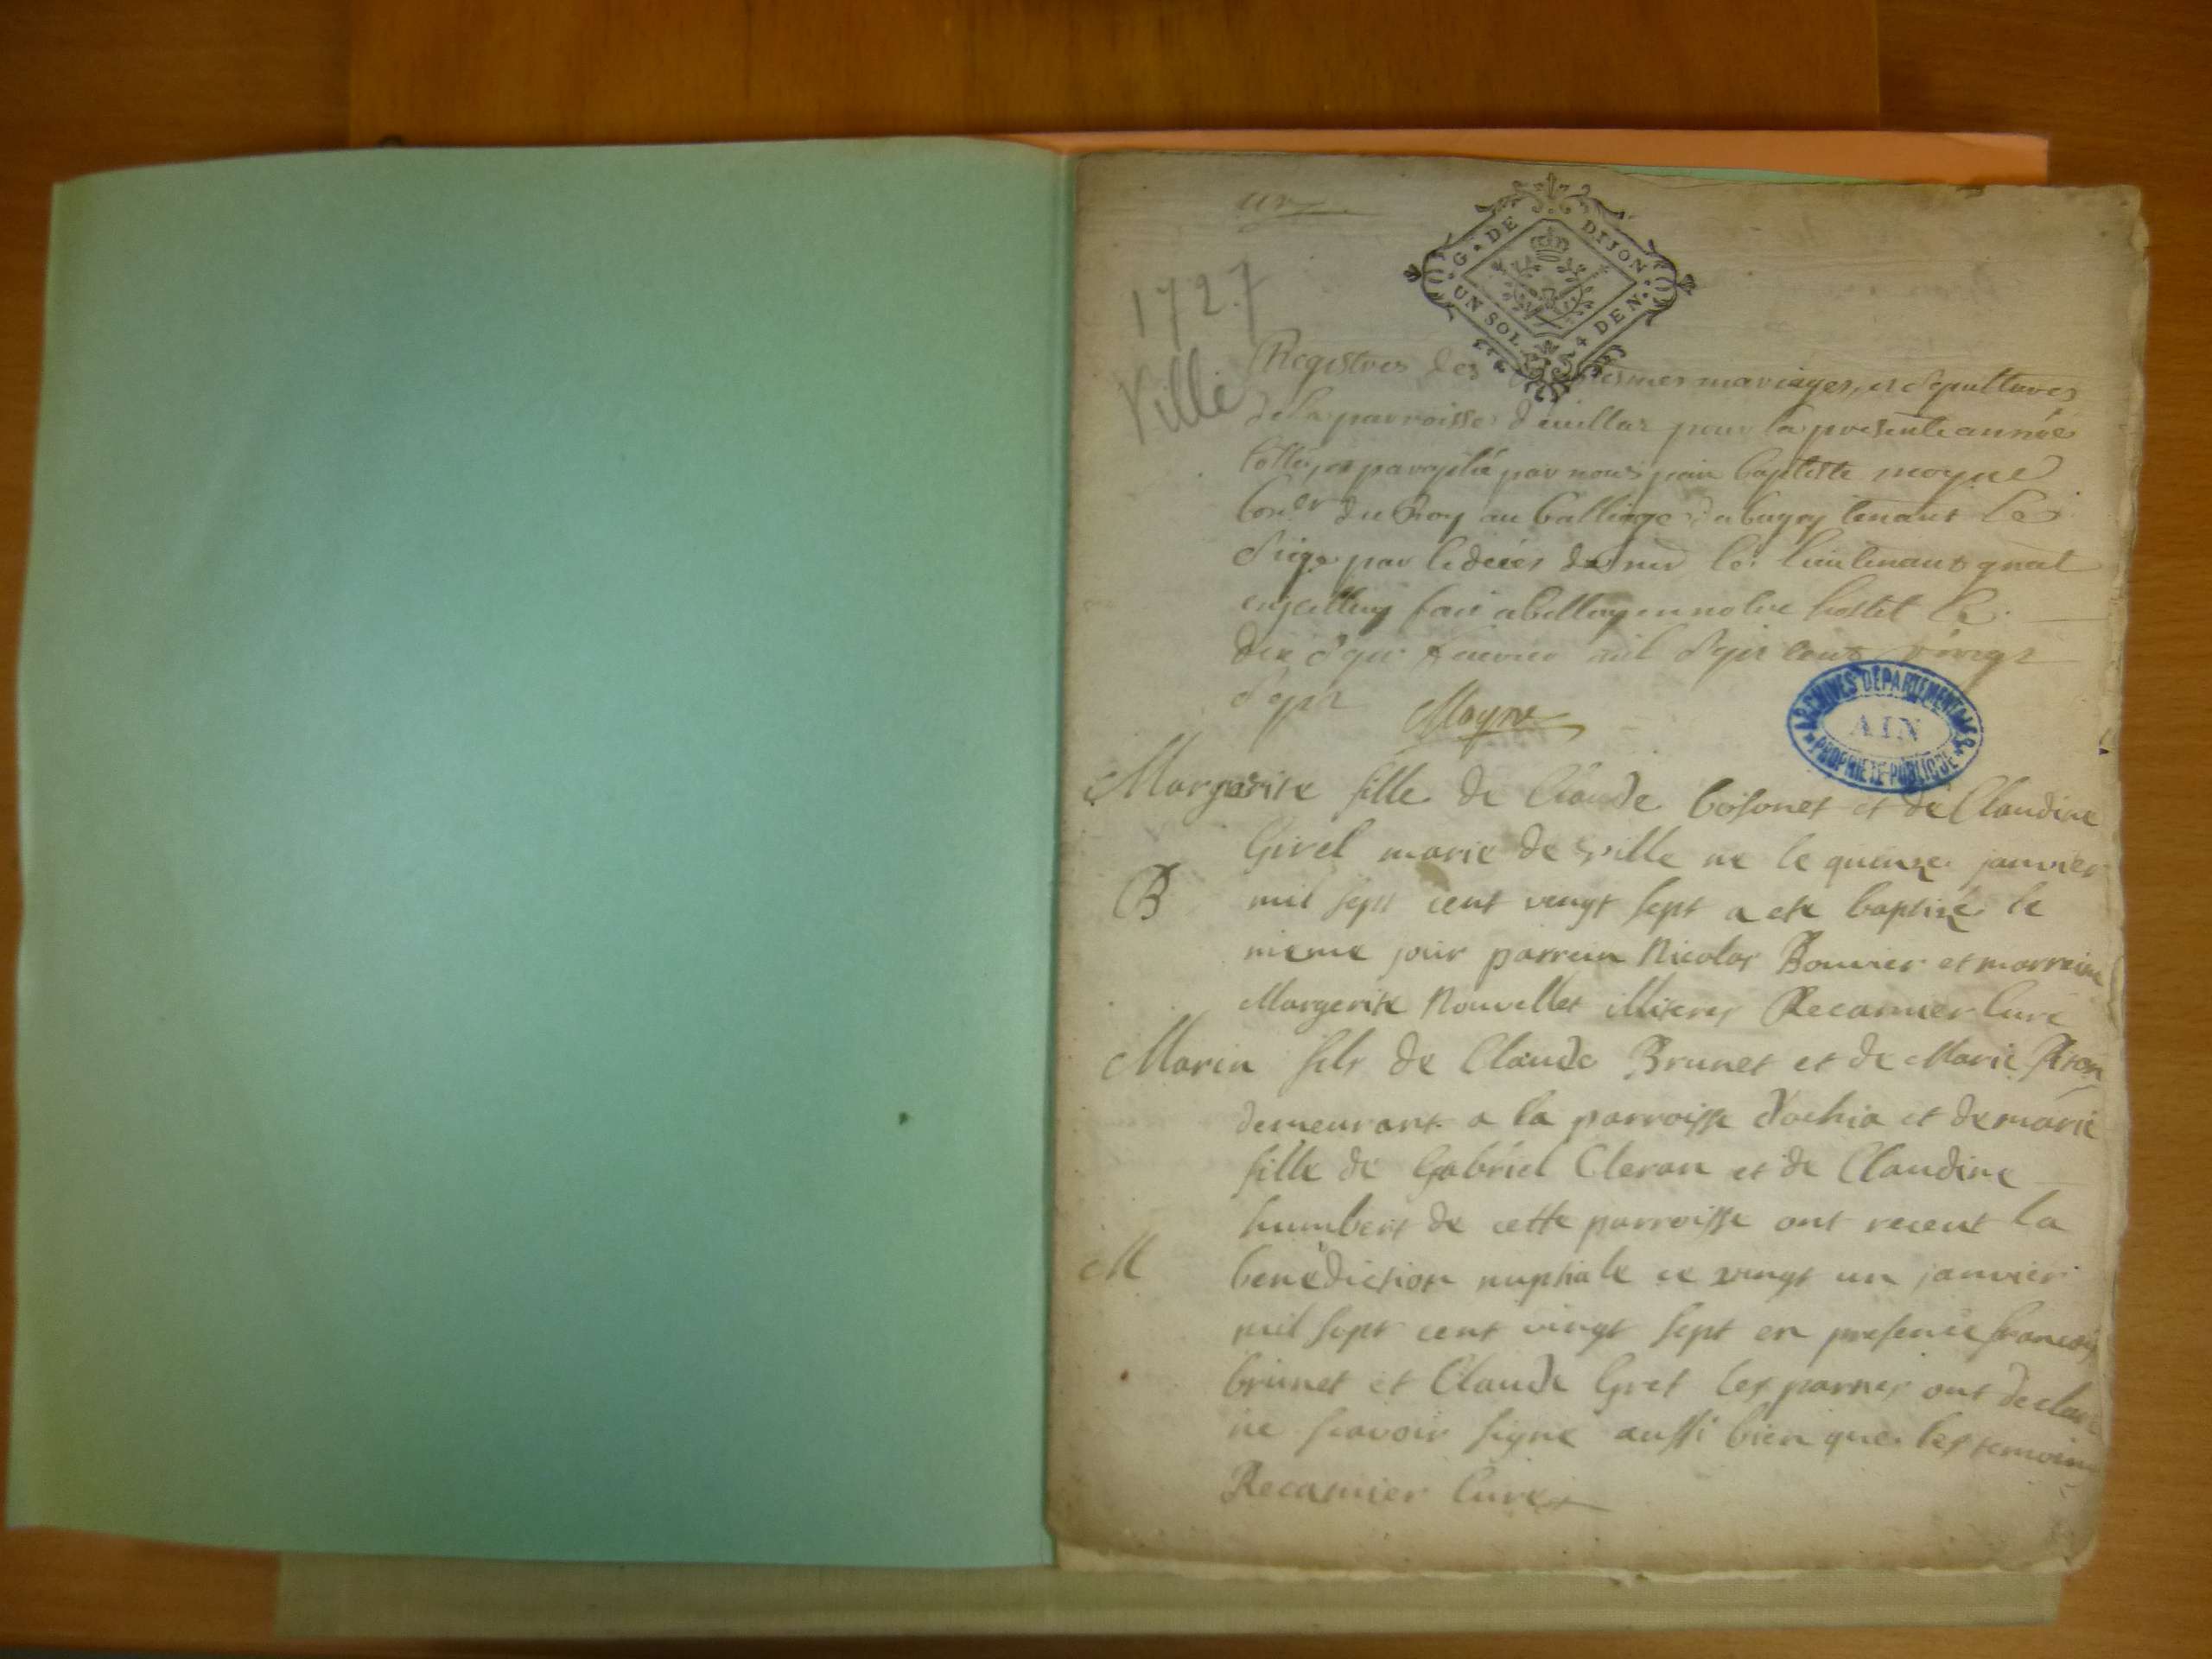 un
G. DE DIJON
UN SOL 4 DEN.
1727
Ville
Registres des mariages, et sepultures
de la parroisse pour la presente année
par nous jean baptiste moyne
du Roy au balliage de bugey tenant le
siege par le deces de le lieutenant
fait a belley en notre hostel le
dix sept mil sept cent vingt
sept Moyne
ARCHIVES DEPARTEMENTALES
AIN
PROPRIETE PUBLIQUE
Margerite fille de Claude bosonet et de Claudine
Girel marie de ville ne le quinze janvier
B mil sept cent vingt sept a ete baptizé le
meme jour parrein Nicolas Bouvier et marreine
Margerite Nouvellet illiteres Recamier Curé
Marin fils de Claude Brunet et de Marie
demeurant a la parroisse et de marie
fille de Gabriel Cleran et de Claudine
humbert de cette parroisse ont receut la
M benediction nuptiale ce vingt un janvier
mil sept cent vingt sept en presence francois
brunet et Claude Gret les parties ont declare
ne scavoir signe aussi bien que les temoins
Recamier Curé